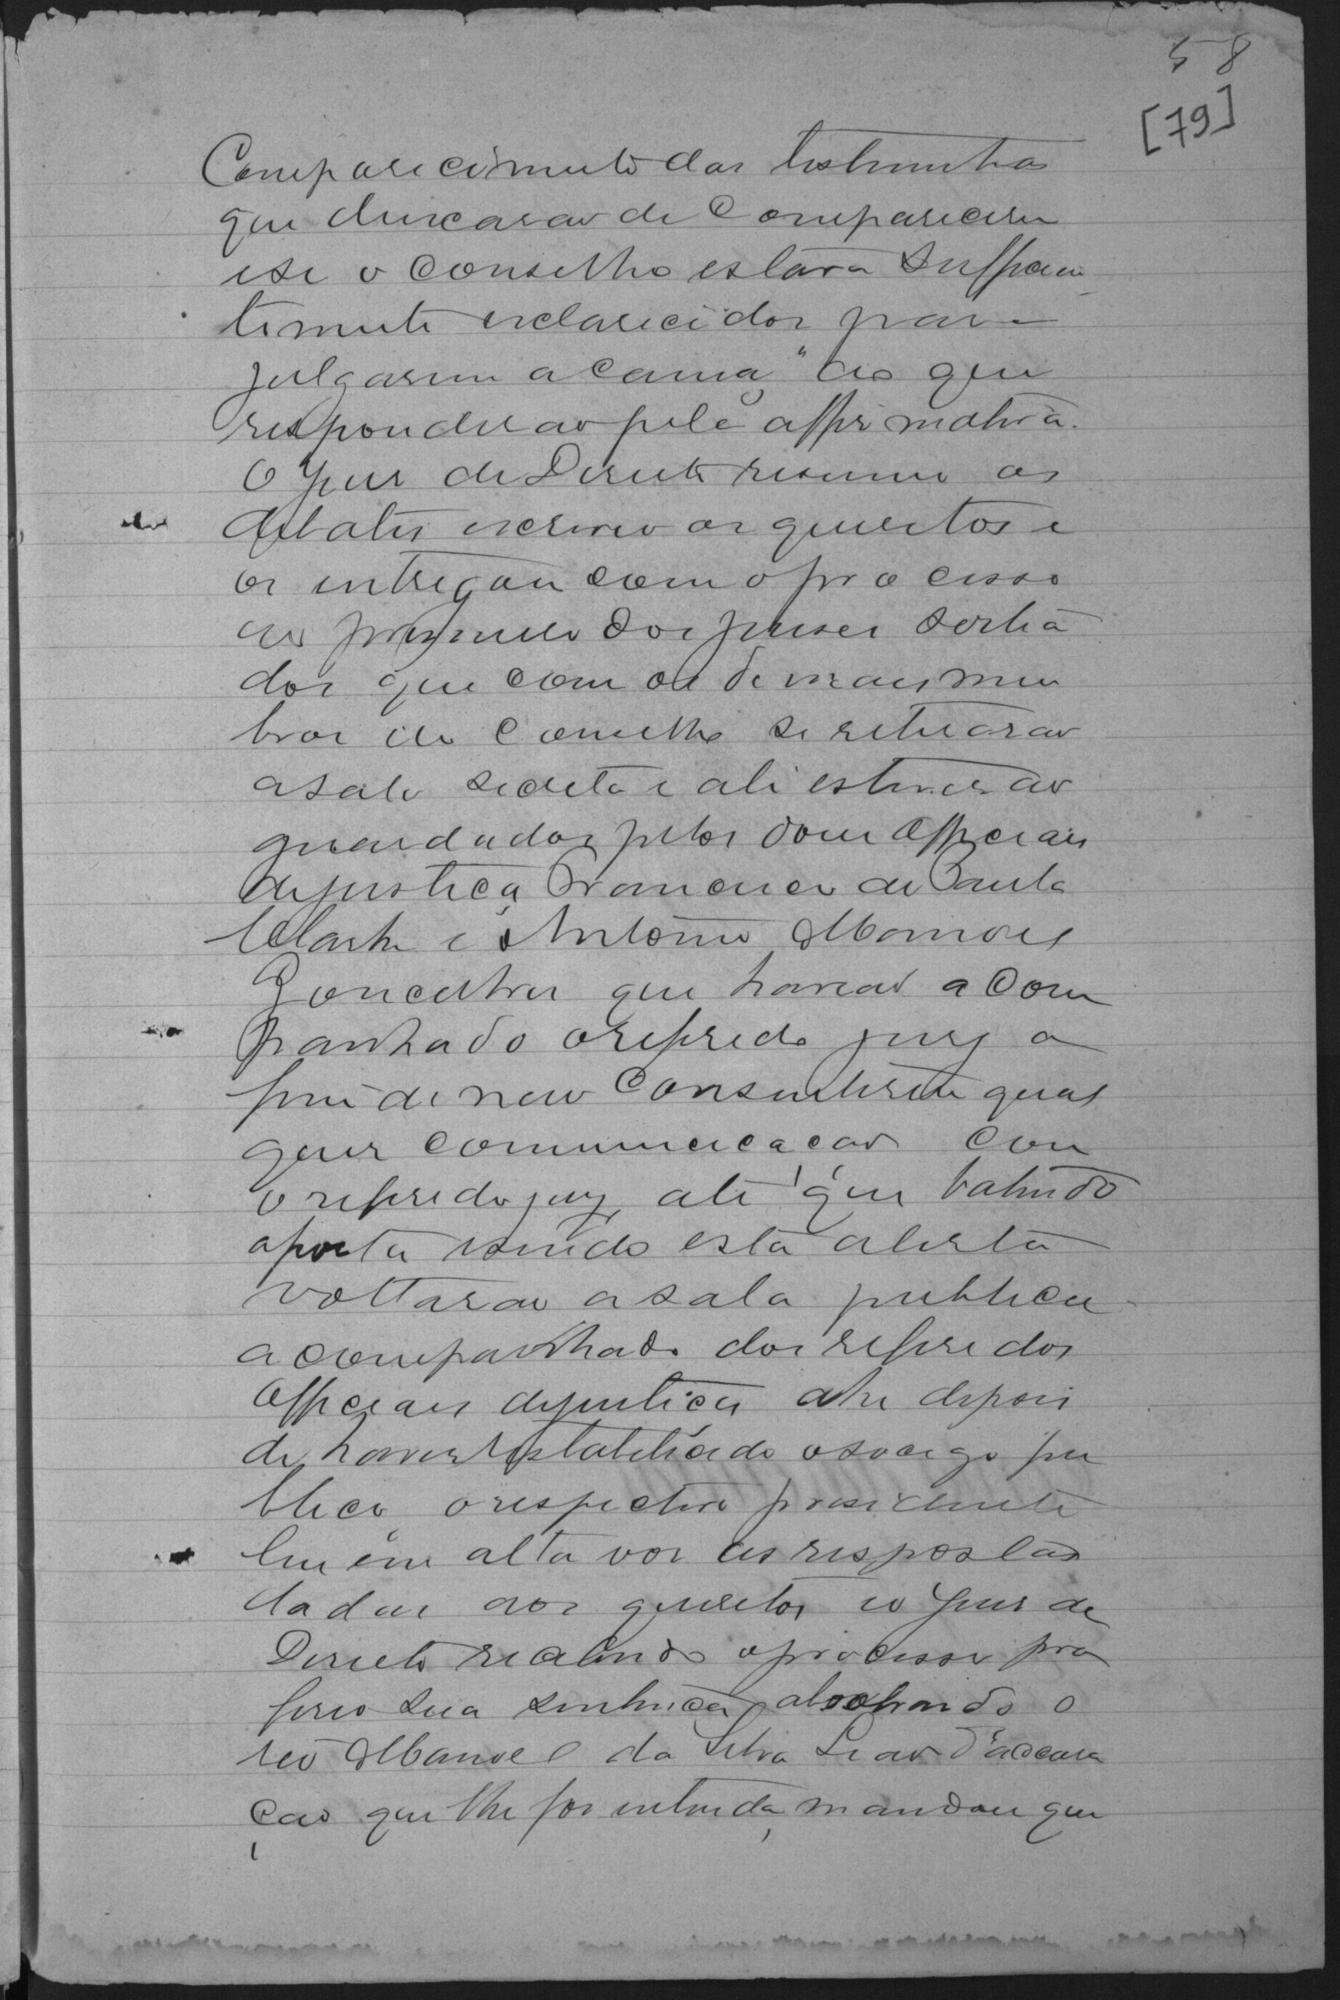 58
[79]
Comparecimento das testimunhas
que deixarao de comparecerem
e se o conselho estava sufficien
temente esclarecidos para
julgarem a causa, ao que
responderao pela affirmativa.
O Juiz de Direito resumio os
debates escreveo os quesitos e
os entregou com o processo
ao primeiro dos juises sortea
dos que com os demais mem
bros do Conselho se retirarao
a sala secreta e ali estiverao
guardados pelos dous officiais
de justiça Francisco de Paula
e Antonio Manoel
Goncalves que haviao acom
panhado o referido jury a
fim de nao consentirem qual
quer communicaçao com
o referido jury, até que batendo
a porta e sendo esta aberta
voltarao a sala publica
acompanhado dos referidos
officiais de justiça ahi depois
de haver restabelecido o socego pu
blico, o respectivo presidente
leu em alta voz as respostas
dadas aos quesitos e o Juiz de
Direito recebendo o processo pro
ferio sua sentença absolvendo o
reo Manoel da Silva Leao d'accusa
çao que lhe foi intentada, mandou que